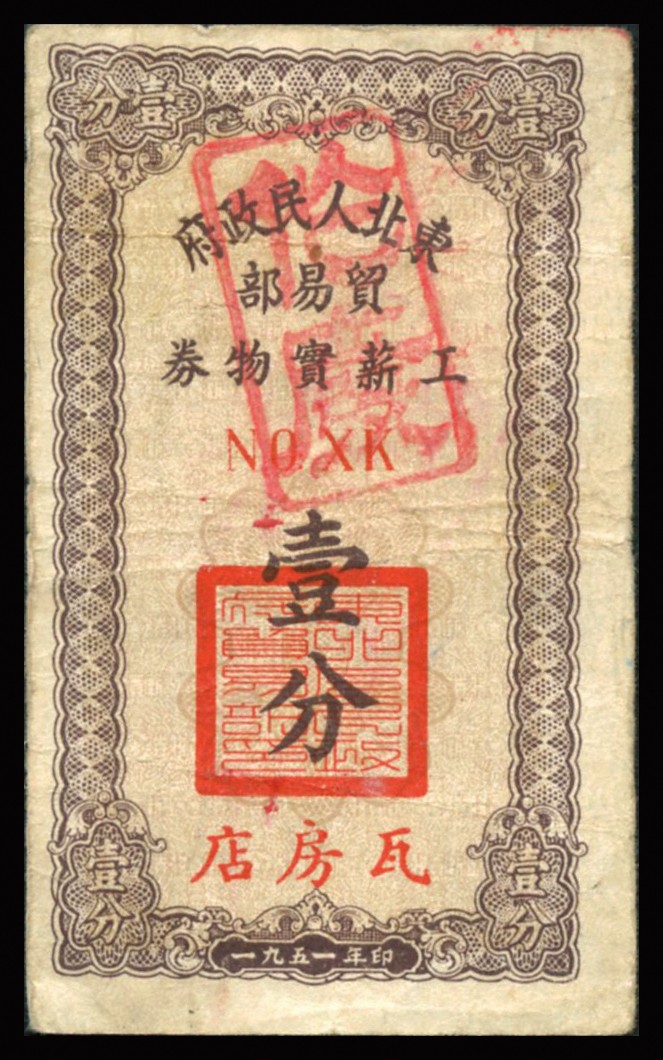 壹分
壹分
東北人民政府
貿易部
工薪實物券
NO. XK
壹分
瓦房店
壹分
壹分
一九五一年印